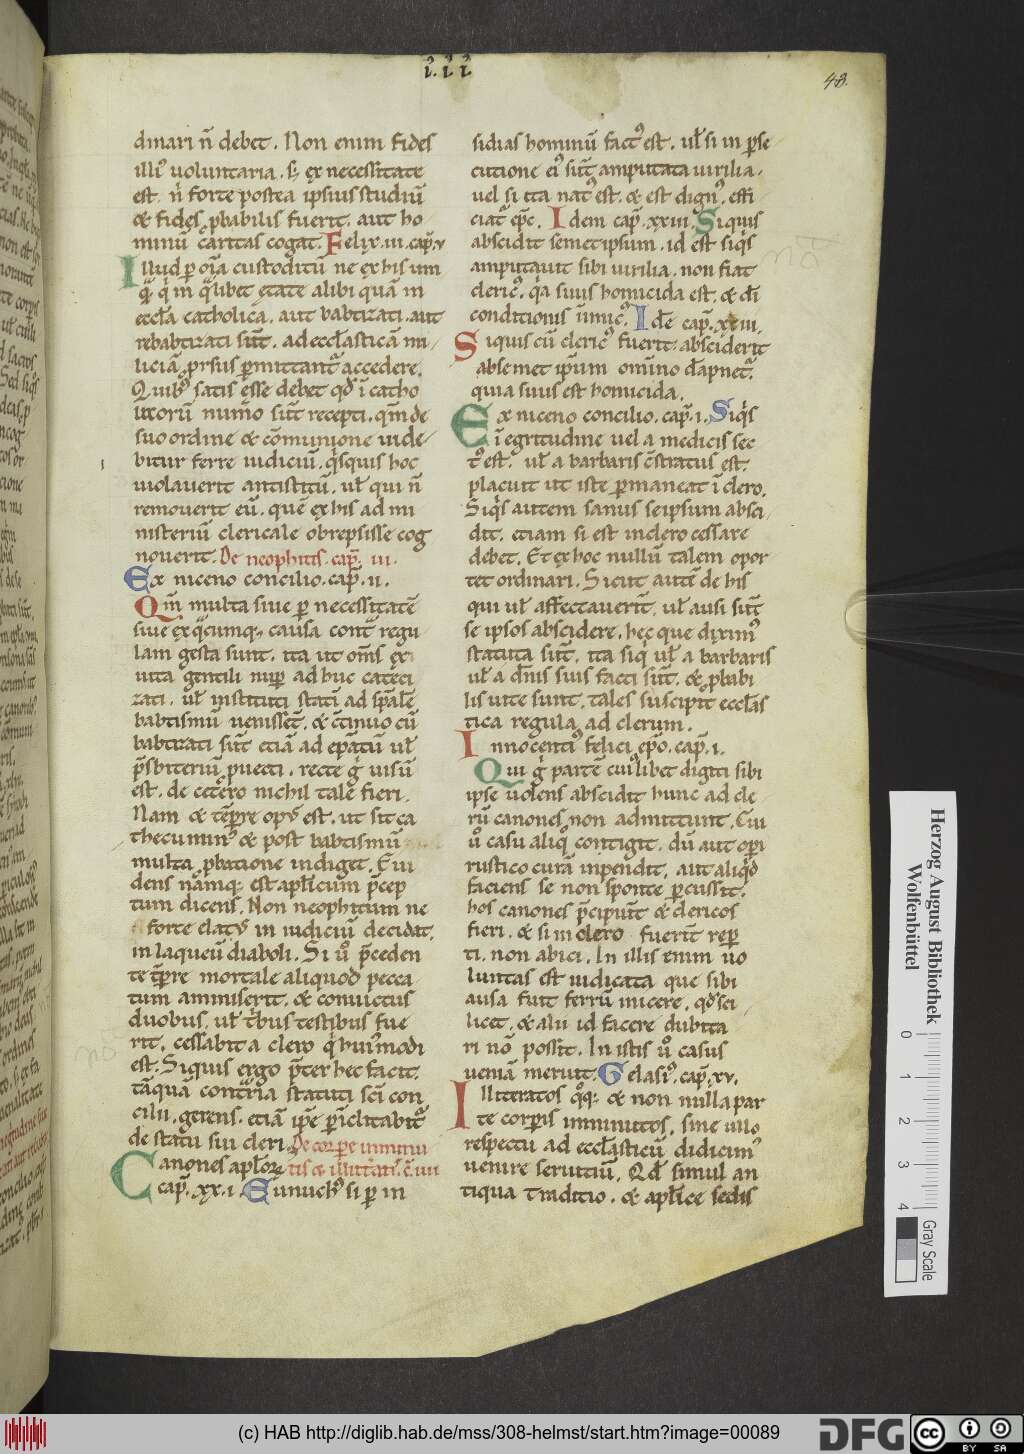 i. i. i.
48.
dinari n̄ debet. Non enim fides
illi⁹ uoluntaria. s; ex necessitate
est. n̍ forte postea ipsius studiū
& fides ꝓbabilis fuerit. aut ho
minū caritas cogat. Felix. iii. cap̄. v
Illud p̱ oīa custoditū ne ex his um
q̄ q̍ in q̄libet etate alibi quā in
eccl̄a catholica. aut babtizati. aut
rebabtizati sūt. ad eccl̄asticā mi
liciā ꝓrsus p̱mittant̄ accedere.
Quib⁹ satis esse debet qd̄ ī catho
licorū num̄o sūt recepti. qm̄ de
suo ordine & cōmunione uide
bitur ferre iudiciū. q̍squis hoc
uiolauerit antistitū. ul̄ qui n̄
remouerit eū. quē ex his ad mi
nisteriū clericale obrepsisse cog
nouerit. De neophitis. cap̄. iii.
Ex niceno concilio. cap̄. ii.
Qm̄ multa siue p̱ necessitatē
siue ex q̄cumq; causa cont̄ regu
lam gesta sunt. ita ut om̄s ex
uita gentili nup̱ ad huc cateci
zati. ul̄ instituti statī ad sp̄alē
babtismū uenissēt. & c̄tinuo cū
babtizati sūt etiā ad ep̄atū ul̄
p̄sbiteriū ꝓuecti. recte g̍ uisū
est. de cet̄ero nichil tale fieri.
Nam & tēp̱re op⁹ est. ut sit ca
thecumin⁹ & post babtismū
multa ꝓbatione indiget. Eui
dens nāmq; est apl̄icum p̄cep
tum dicens. Non neophitum ne
forte elat⁹ in iudiciū decidat.
in laqueū diaboli. Si u̍o p̄ceden
te tēp̱re mortale aliquod pecca
tum ammiserit. & conuictus
duobus. ul̄ t̍bus testibus fue
rit. cessabit a clero q̍ hui⁹modi
est. Siquis ergo p̄ter hec facit.
tāquā contraria statuti sc̄i con
cilii. gerens. etiā ip̄e p̱īclitabit̄
de statu sui cleri. De corp̱e inminu
Canones aposℓoꝝ tis & illittatis. c̄. iiii
cap̄. xx. i. Eunuch⁹ si p̱ in
sidias hominū fact⁹ est. ul̄ si in p̱se
cutione ei⁹ sūt amputata uirilia.
uel si ita nat⁹ est. & est dign⁹. effi
ciat̄ ep̄c. Idem cap̄. xxiii. Siquis
abscidit semetipsum. id est siq̍s
amputauit sibi uirilia. non fiat
cleric⁹. q̍a suus homicida est. & dī
conditionis inimic⁹. Idē cap̄. xxiiii.
Siquis cū cleric⁹ fuerit. absciderit
absemet ip̄um om̄ino dāpnet̄.
quia suus est homicida.
Ex niceno concilio. cap̄. i. Siq̍s
ī egritudine uel a medicis sec
t⁹ est. ul̄ a barbaris c̄stratus est.
placuit ut iste p̱maneat ī clero.
Siq̍s autem sanus seipsum absci
dit. etiam si est in clero cessare
debet. Et ex hoc nullū talem opor
tet ordinari. Sicut autē de his
qui ul̄ affectauerit̄. ul̄ ausi sūt
se ipsos abscidere. hec que dixim⁹
statuta sūt. ita siq̍ ul̄ a barbaris
ul̄ a dn̄is suis facti sūt. & ꝓbabi
lis uite sunt. tales suscipit eccl̄as
tica regula ad clerum.
Innocenti⁹ felici ep̄o. cap̄. i.
Qui g̍ partē cui⁹libet digiti sibi
ipse uolens abscidit hunc ad cle
rū canones non admittunt. Cui
u̍o casu aliq̍ contigit. dū aut op̱i
rustico curā inpendit. aut aliqd̄
faciens se non sponte p̱cussit.
hos canones p̄cipiūt & clericos
fieri. & si in clero fuerit̄ rep̱
ti. non abici. In illis enim uo
luntas est iudicata que sibi
ausa fuit ferrū inicere. qd̄ sci
licet. & alii id facere dubita
ri nō possit. In istis u̍o casus
ueniā meruit. Gelasi⁹. cap̄. xv.
Illiteratos q̍q; & non nulla par
te corp̱is imminutos. sine ullo
respectu ad eccl̄asticū didicim⁹
uenire seruitiū. Qd̄ simul an
tiqua traditio. & apl̄ice sedis
Herzog August Bibliothek
Wolfenbüttel
0 1 2 3 4
Gray Scale
(c) HAB http://diglib.hab.de/mss/308-helmst/start.htm?image=00089
DFG
cc BY SA